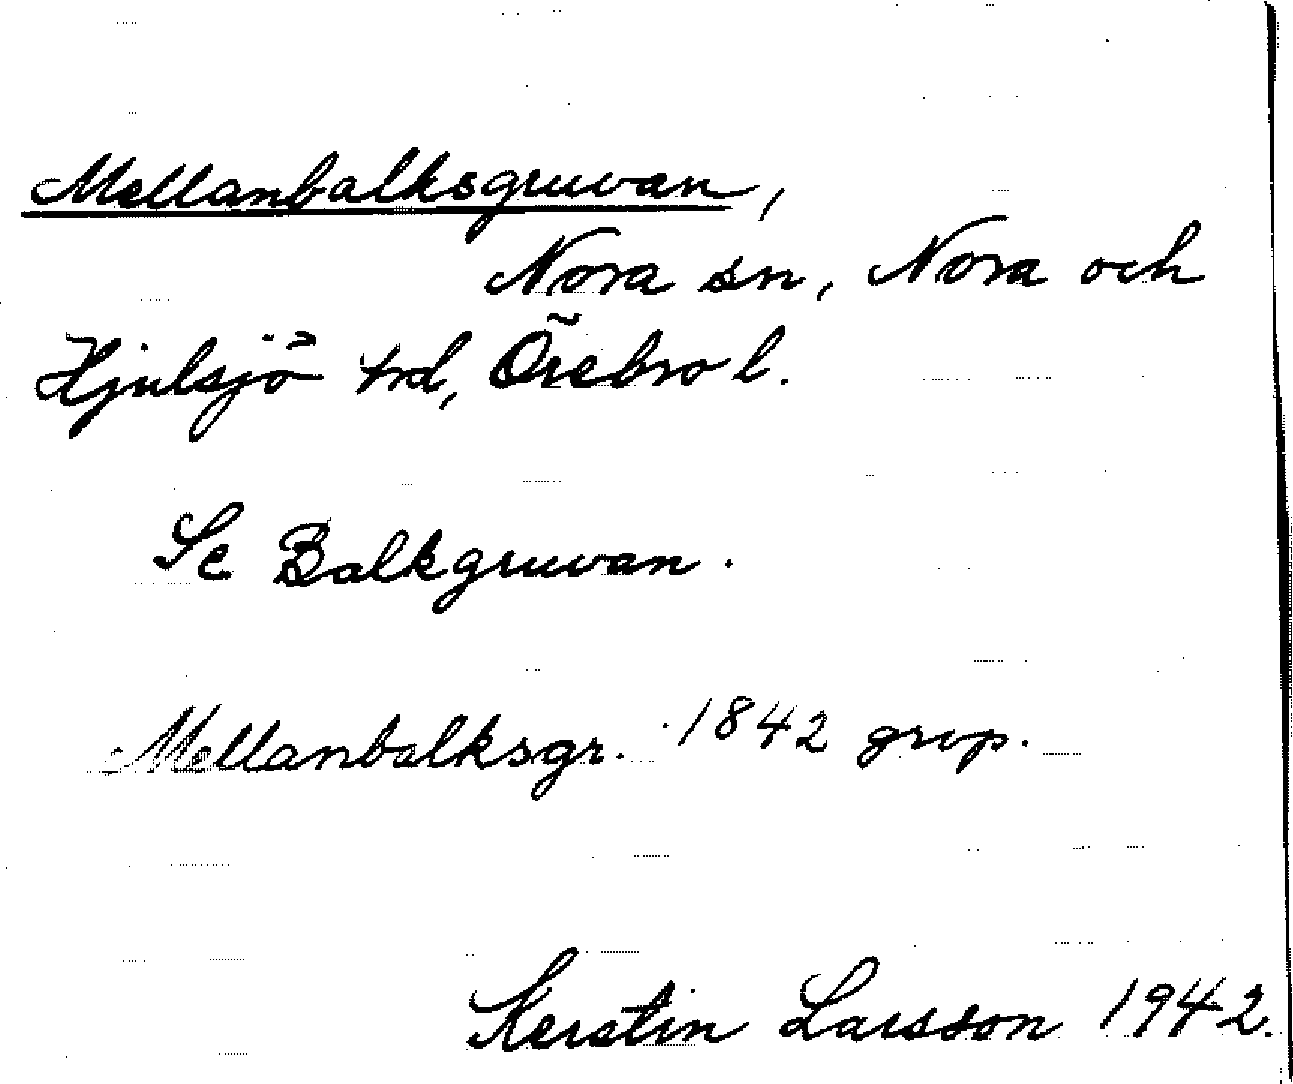 Mellanbalksgruvan,
Nora sn, Nora och
Hjulsjö trd, Örebro l.
Se Balkgruvan.
Mellanbalksgr. 1842 grvp.
Kerstin Larsson 1942.